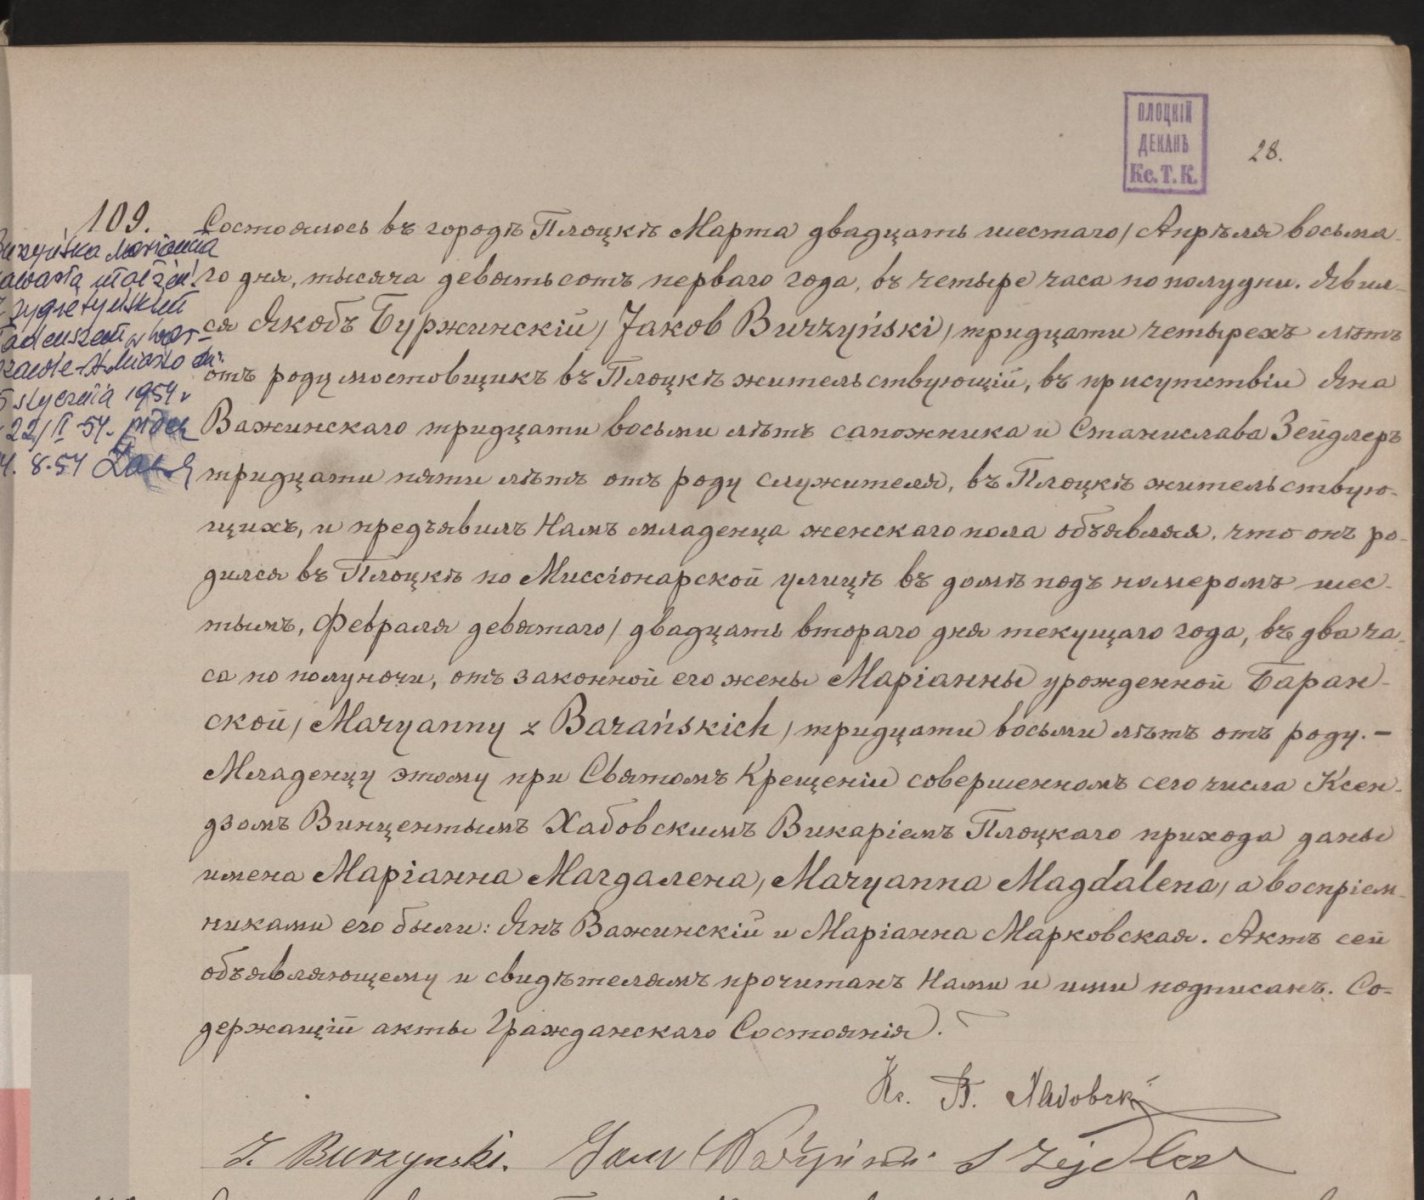 ПЛОЦКІЙ
ДЕКАНЪ
Кс. Т. К.
28.
109.
Состоялось въ городѣ Плоцкѣ Марта двадцать шестаго / Апрѣля восьма-
го дня, тысяча девятьсотъ перваго года, въ четыре часа по полудни. Явил-
ся Якобъ Буржинскій / Jakób Burzyński / тридцати четырехъ лѣтъ
отъ роду мостовщикъ въ Плоцкѣ жительствующій, въ присутствіи Яна
Важинскаго тридцати восьми лѣтъ сапожника и Станислава Зейдлеръ
тридцати пяти лѣтъ отъ роду служителя, въ Плоцкѣ жительствую-
щихъ, и предъявилъ Намъ младенца женскаго пола объявляя, что онъ ро-
дился въ Плоцкѣ по Миссіонарской улицѣ въ домѣ подъ номеромъ шес-
тымъ, Февраля девятаго / двадцать втораго дня текущаго года, въ два ча-
са по полуночи, отъ законной его жены Маріанны урожденной Баран-
ской / Maryanny z Barańskich / тридцати восьми лѣтъ отъ роду. –
Младенцу этому при Святомъ Крещеніи совершенномъ сего числа Ксен-
дзомъ Винцентымъ Хабовскимъ Викаріемъ Плоцкаго прихода даны
имена Маріанна Магдалена / Maryanna Magdalena / а воспріем-
никами его были: Янъ Важинскій и Маріанна Марковская. Актъ сей
объявляющему и свидѣтелямъ прочитанъ Нами и ими подписанъ. Со-
держащій акты Гражданскаго Состоянія.
Marianna
zawarła
w War-
szawie
stycznia 1954 r
22/II 54.
8.54
J. Burzynski. Jan S Zejdler